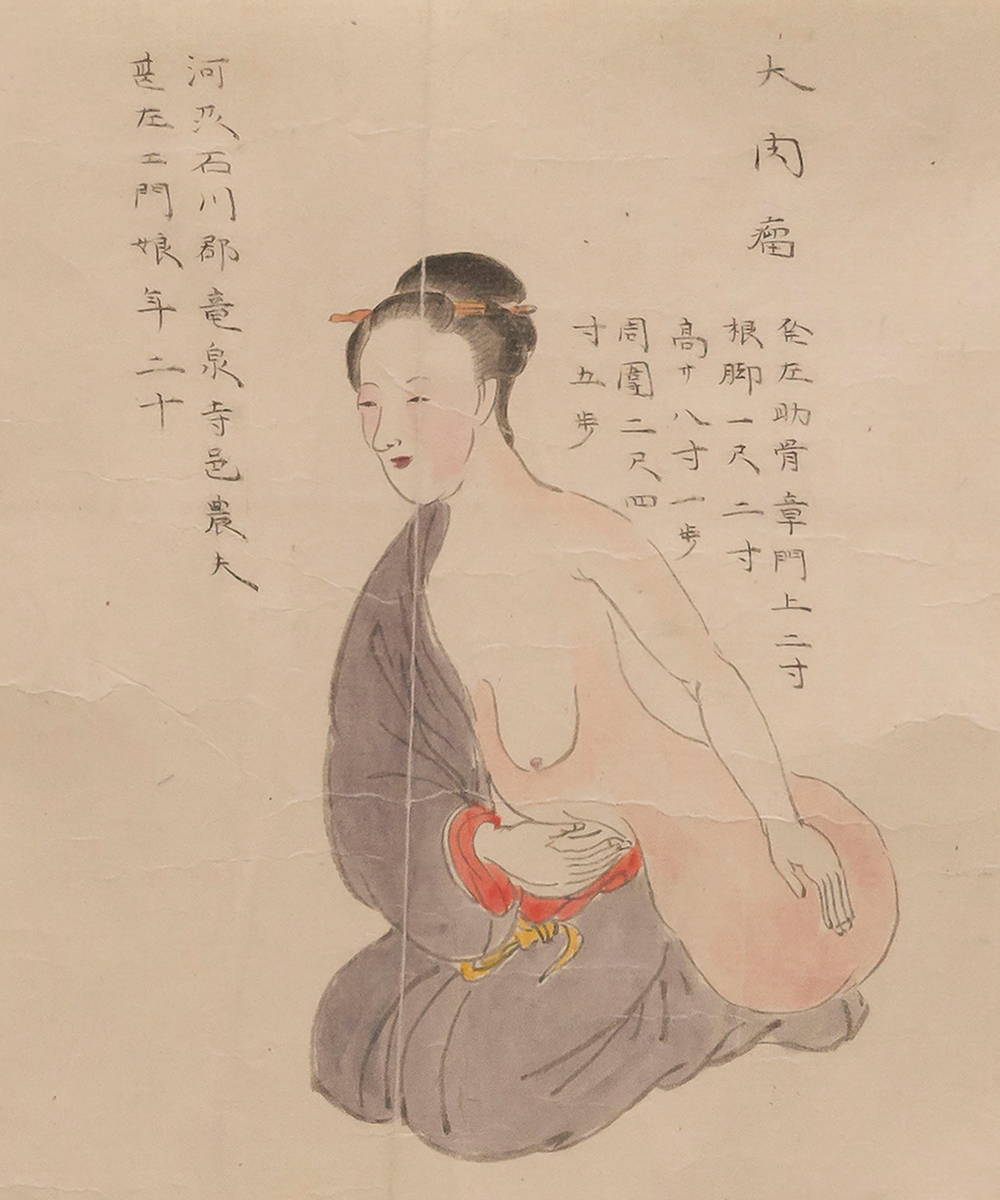 大肉瘤
発左肋骨章門上二寸
根脚一尺二寸
高サ八寸一歩
周圍二尺四
寸五歩
河刕石川郡竜泉寺邑農夫
甚左エ門娘年二十